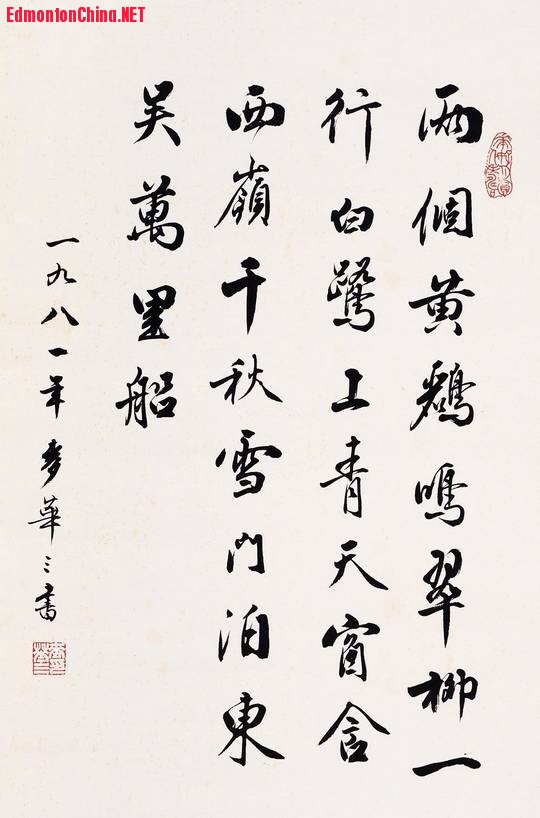 EdmontonChina.NET
兩個黃鸝鳴翠柳一
行白鷺上青天窗含
西嶺千秋雪門泊東
吳萬里船
一九八一年麥華三書